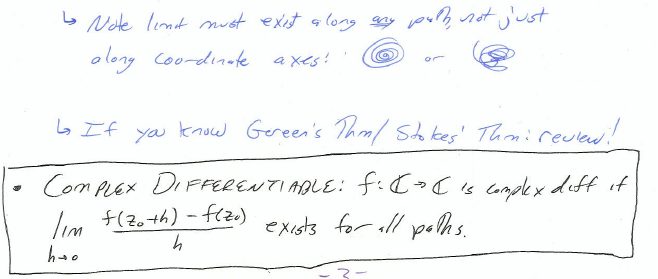 ↳ Note limit must exist along any path, not just
along coordinate axes! or
↳ If you know Gereen's Thm/ Stokes' Thm: review!
• COMPLEX DIFFERENTIABLE: f: ℂ → ℂ is complex diff if
lim h→0 f(z₀+h) - f(z₀) / h exists for all paths.
- 2 -